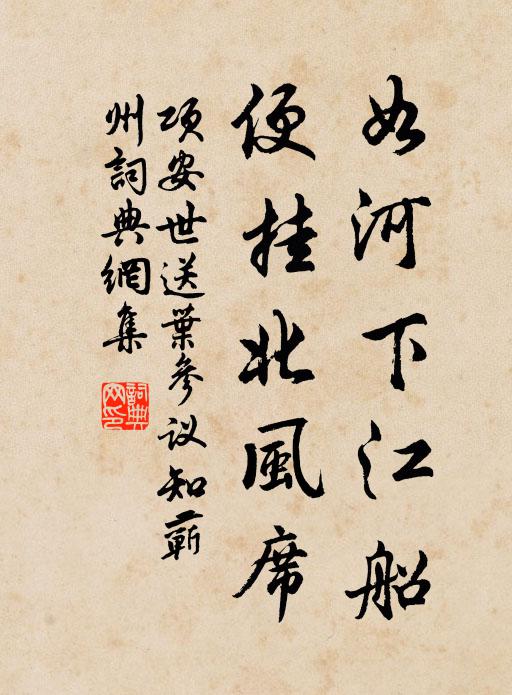 如河下江船
便挂北風席
项安世送葉參议知蘄
州詞典網集
詞典
网印